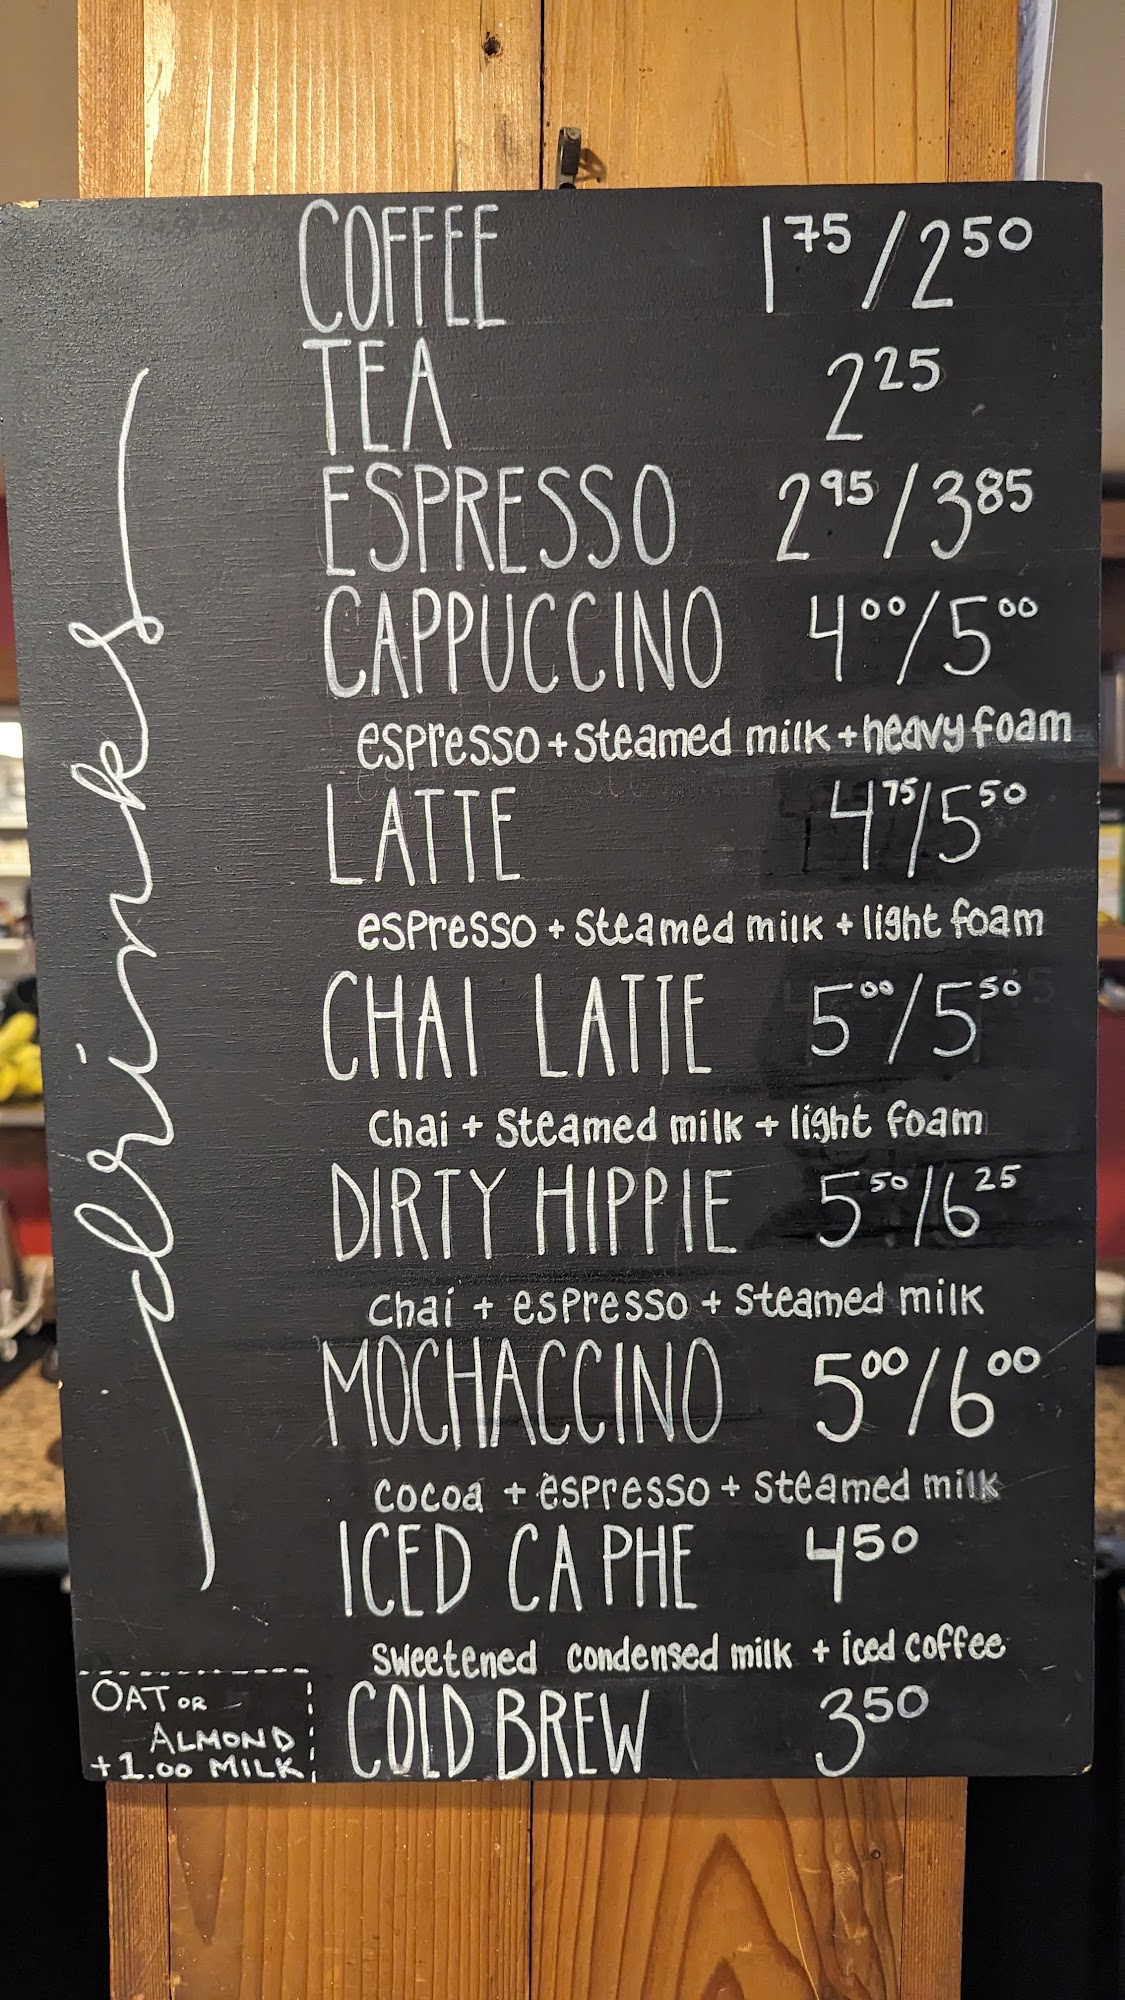 COFFEE 1.75/2.50
TEA 2.25
ESPRESSO 2.95/3.85
CAPPUCCINO 4.00/5.00
espresso + steamed milk + heavy foam
LATTE 4.75/5.50
espresso + steamed milk + light foam
CHAI LATTE 5.00/5.50
chai + steamed milk + light foam
DIRTY HIPPIE 5.50/6.25
chai + espresso + steamed milk
MOCHACCINO 5.00/6.00
cocoa + espresso + steamed milk
ICED CA PHE 4.50
sweetened condensed milk + iced coffee
COLD BREW 3.50
drinks
OAT OR
ALMOND
+1.00 MILK